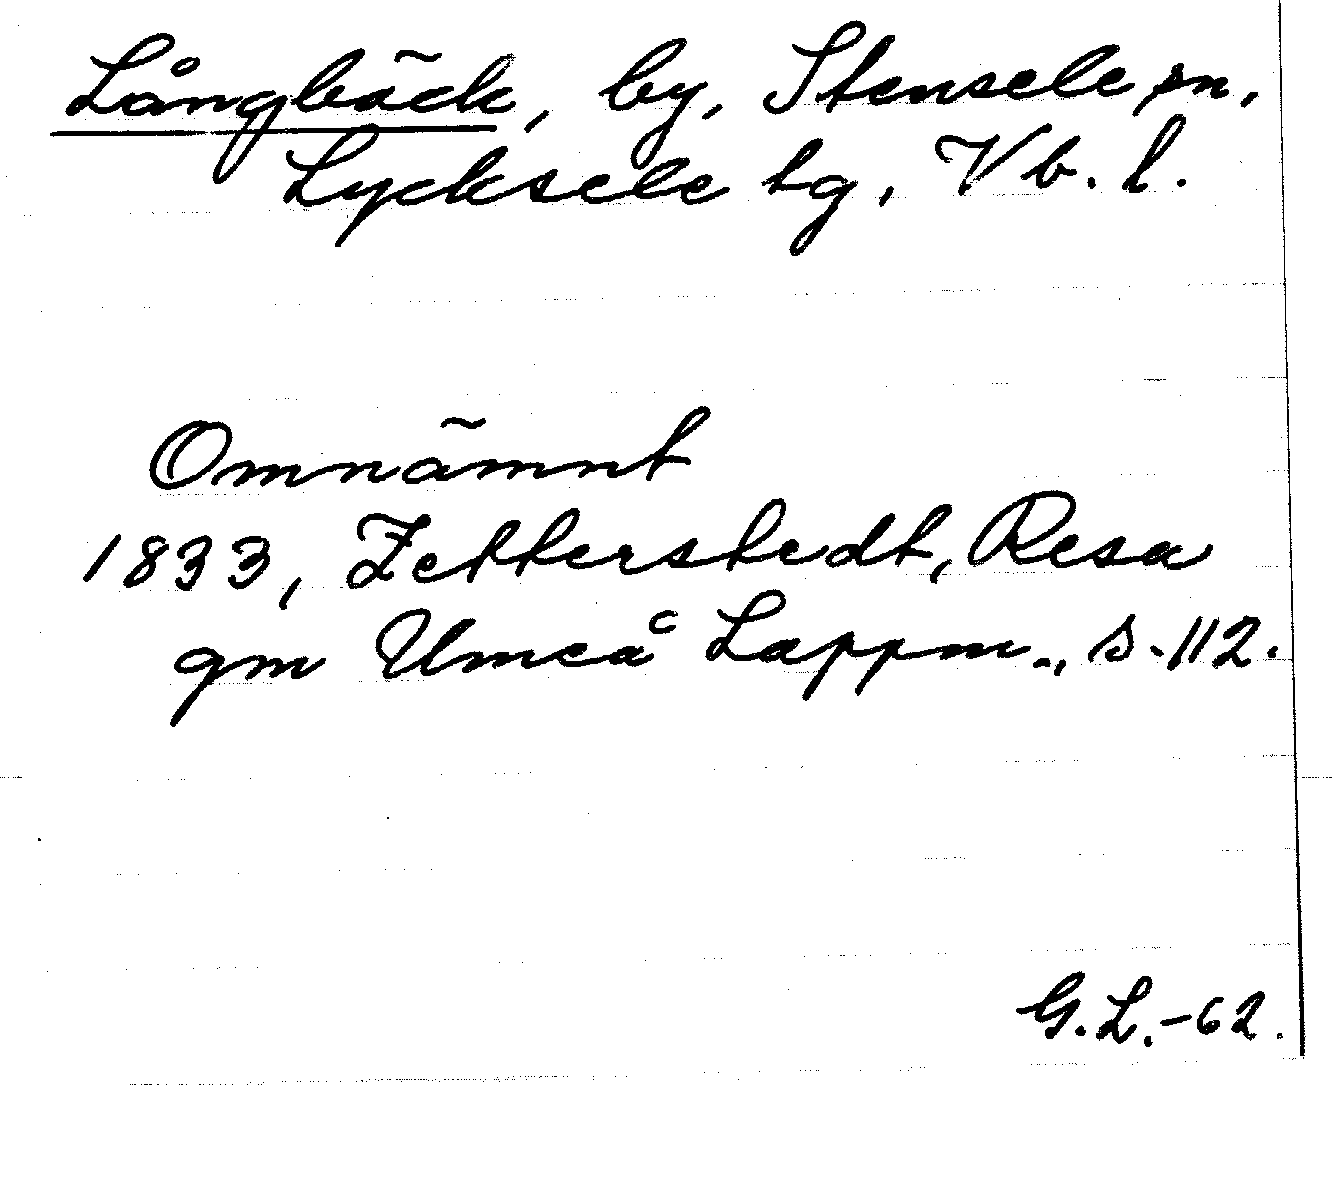 Långbäck, by, Stensele sn,
Lycksele tg, Vb. l.
Omnämnt
1833, Zetterstedt, Resa
gm Umeå Lappm., s. 112.
G.L.-62.